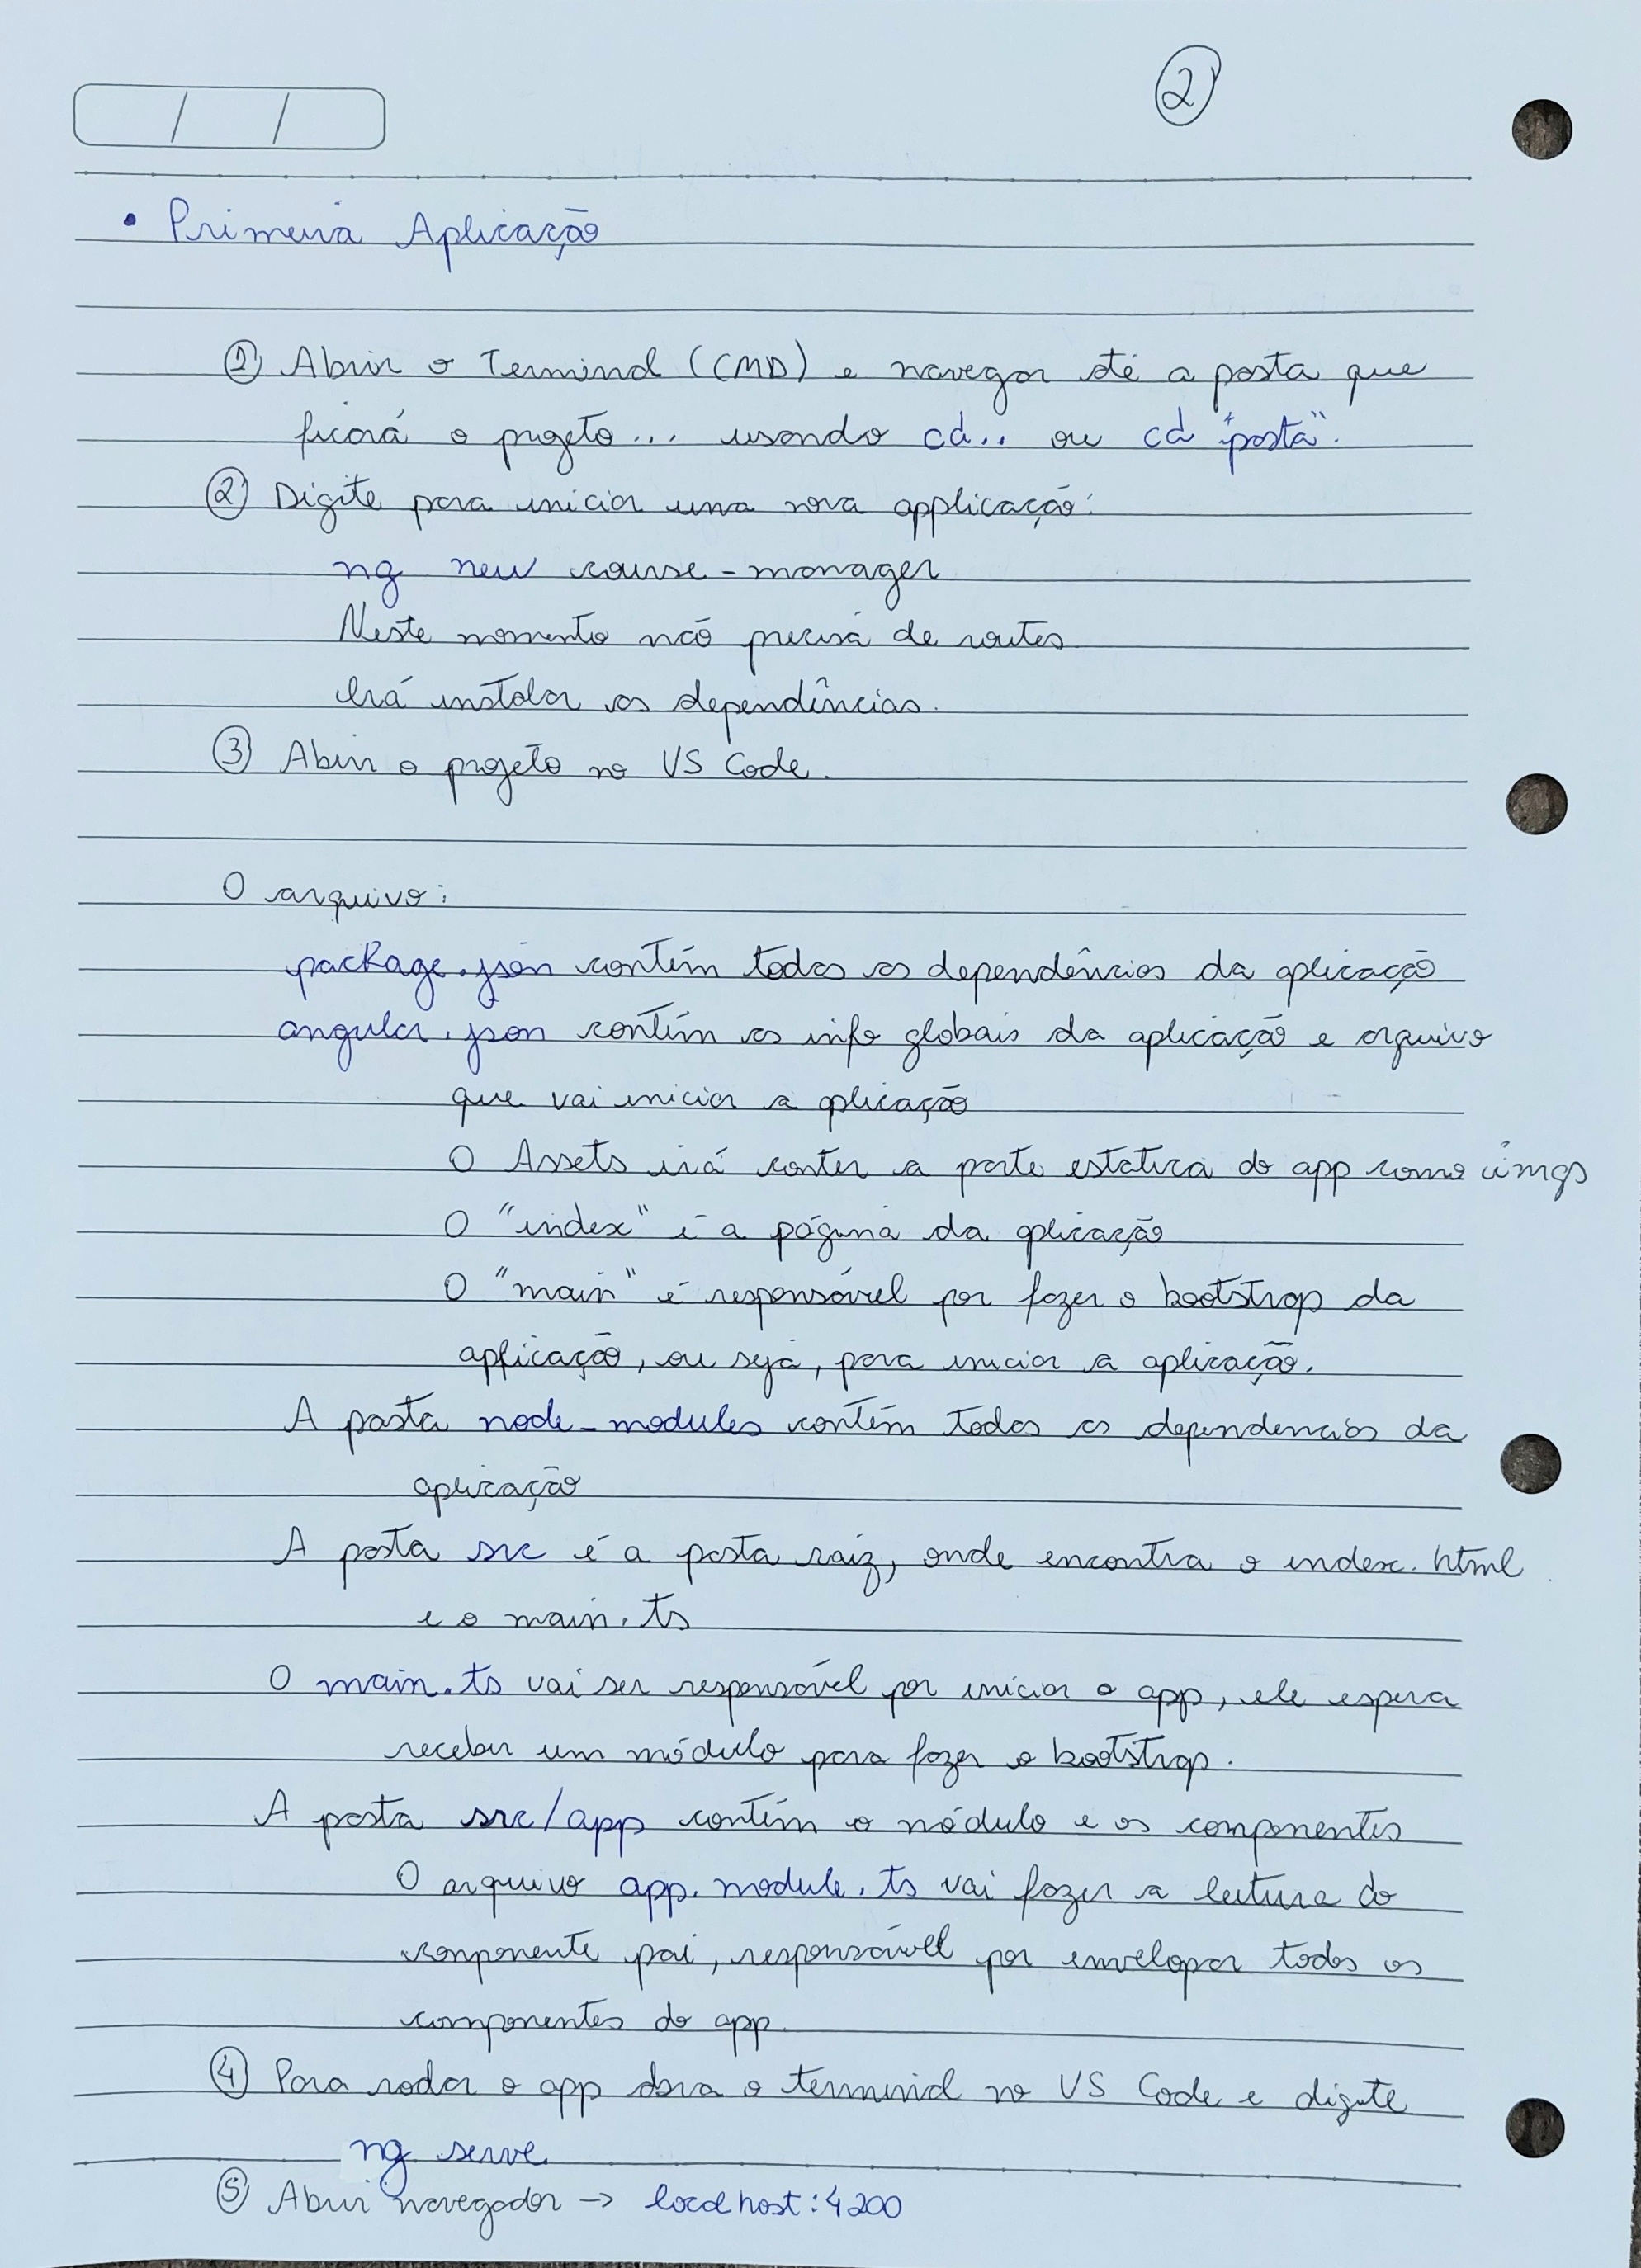 2
/ /
• Primeira Aplicação
① Abrir o Terminal (CMD) e navegar até a pasta que
ficará o projeto... usando cd.. ou cd "pasta".
② Digite para iniciar uma nova applicação:
ng new course-manager
Neste momento não precisa de routes
Irá instalar as dependências.
③ Abrir o projeto no VS Code.
O arquivo:
package.json contém todas as dependências da aplicação
angular.json contém as info globais da aplicação e arquivo
que vai iniciar a aplicação
O Assets irá conter a parte estatica do app como imgs
O "index" é a página da aplicação
O "main" é responsável por fazer o bootstrap da
applicação, ou seja, para iniciar a aplicação.
A pasta node_modules contém todas as dependencias da
aplicação
A pasta src é a pasta raiz, onde encontra o index.html
e o main.ts
O main.ts vai ser responsável por iniciar o app, ele espera
receber um módulo para fazer o bootstrap.
A pasta src/app contém o módulo e os componentes
O arquivo app.module.ts vai fazer a leitura do
componente pai, responsável por envelopar todos os
componentes do app.
④ Para rodar o app abra o terminal no VS Code e digite
ng serve
⑤ Abrir navegador -> localhost:4200